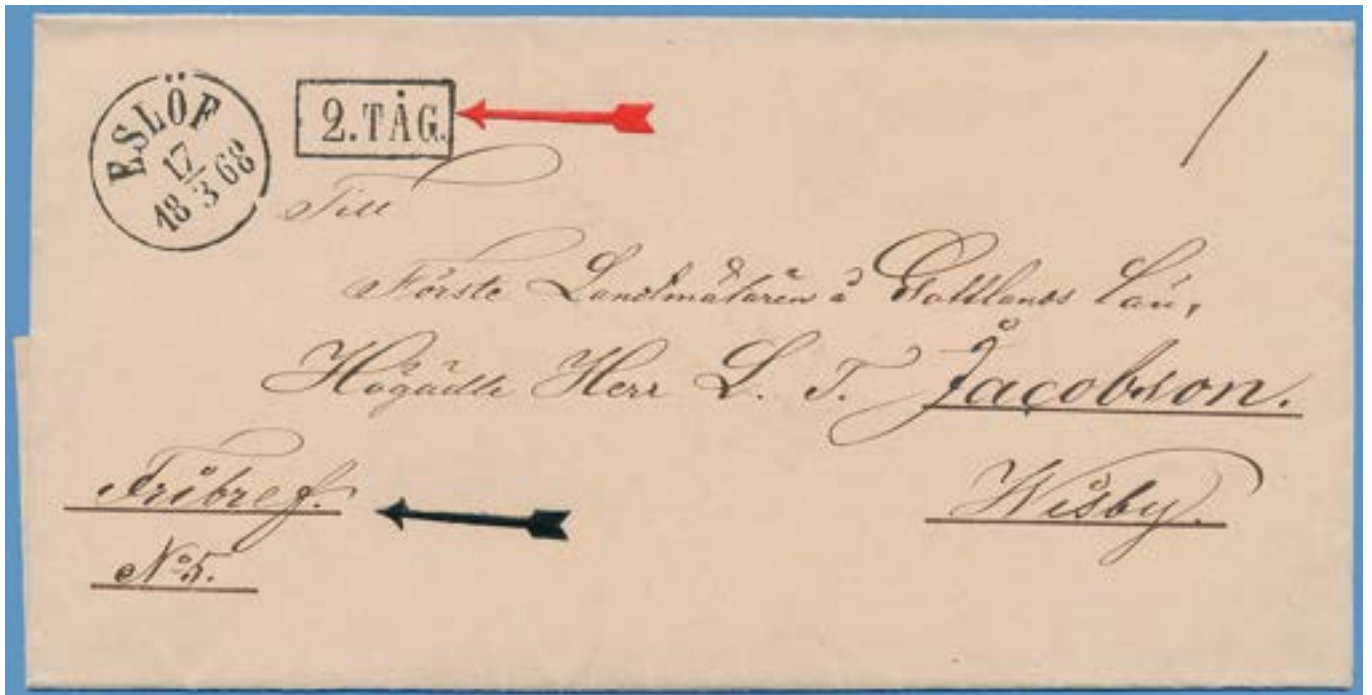 ESLÖF
17
18 3 68
2. TÅG.
/
Till
Förste Landtmätaren å Gottlands Län,
Högädle Herr L. T. Jacobson.
Wisby.
Fribref.
No 5.